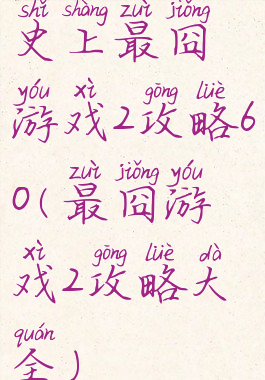 shǐ shàng zuì jiǒng
史上最囧
yóu xì gōng lüè
游戏2攻略6
zuì jiǒng yóu
0(最囧游
xì gōng lüè dà
戏2攻略大
quán
全)